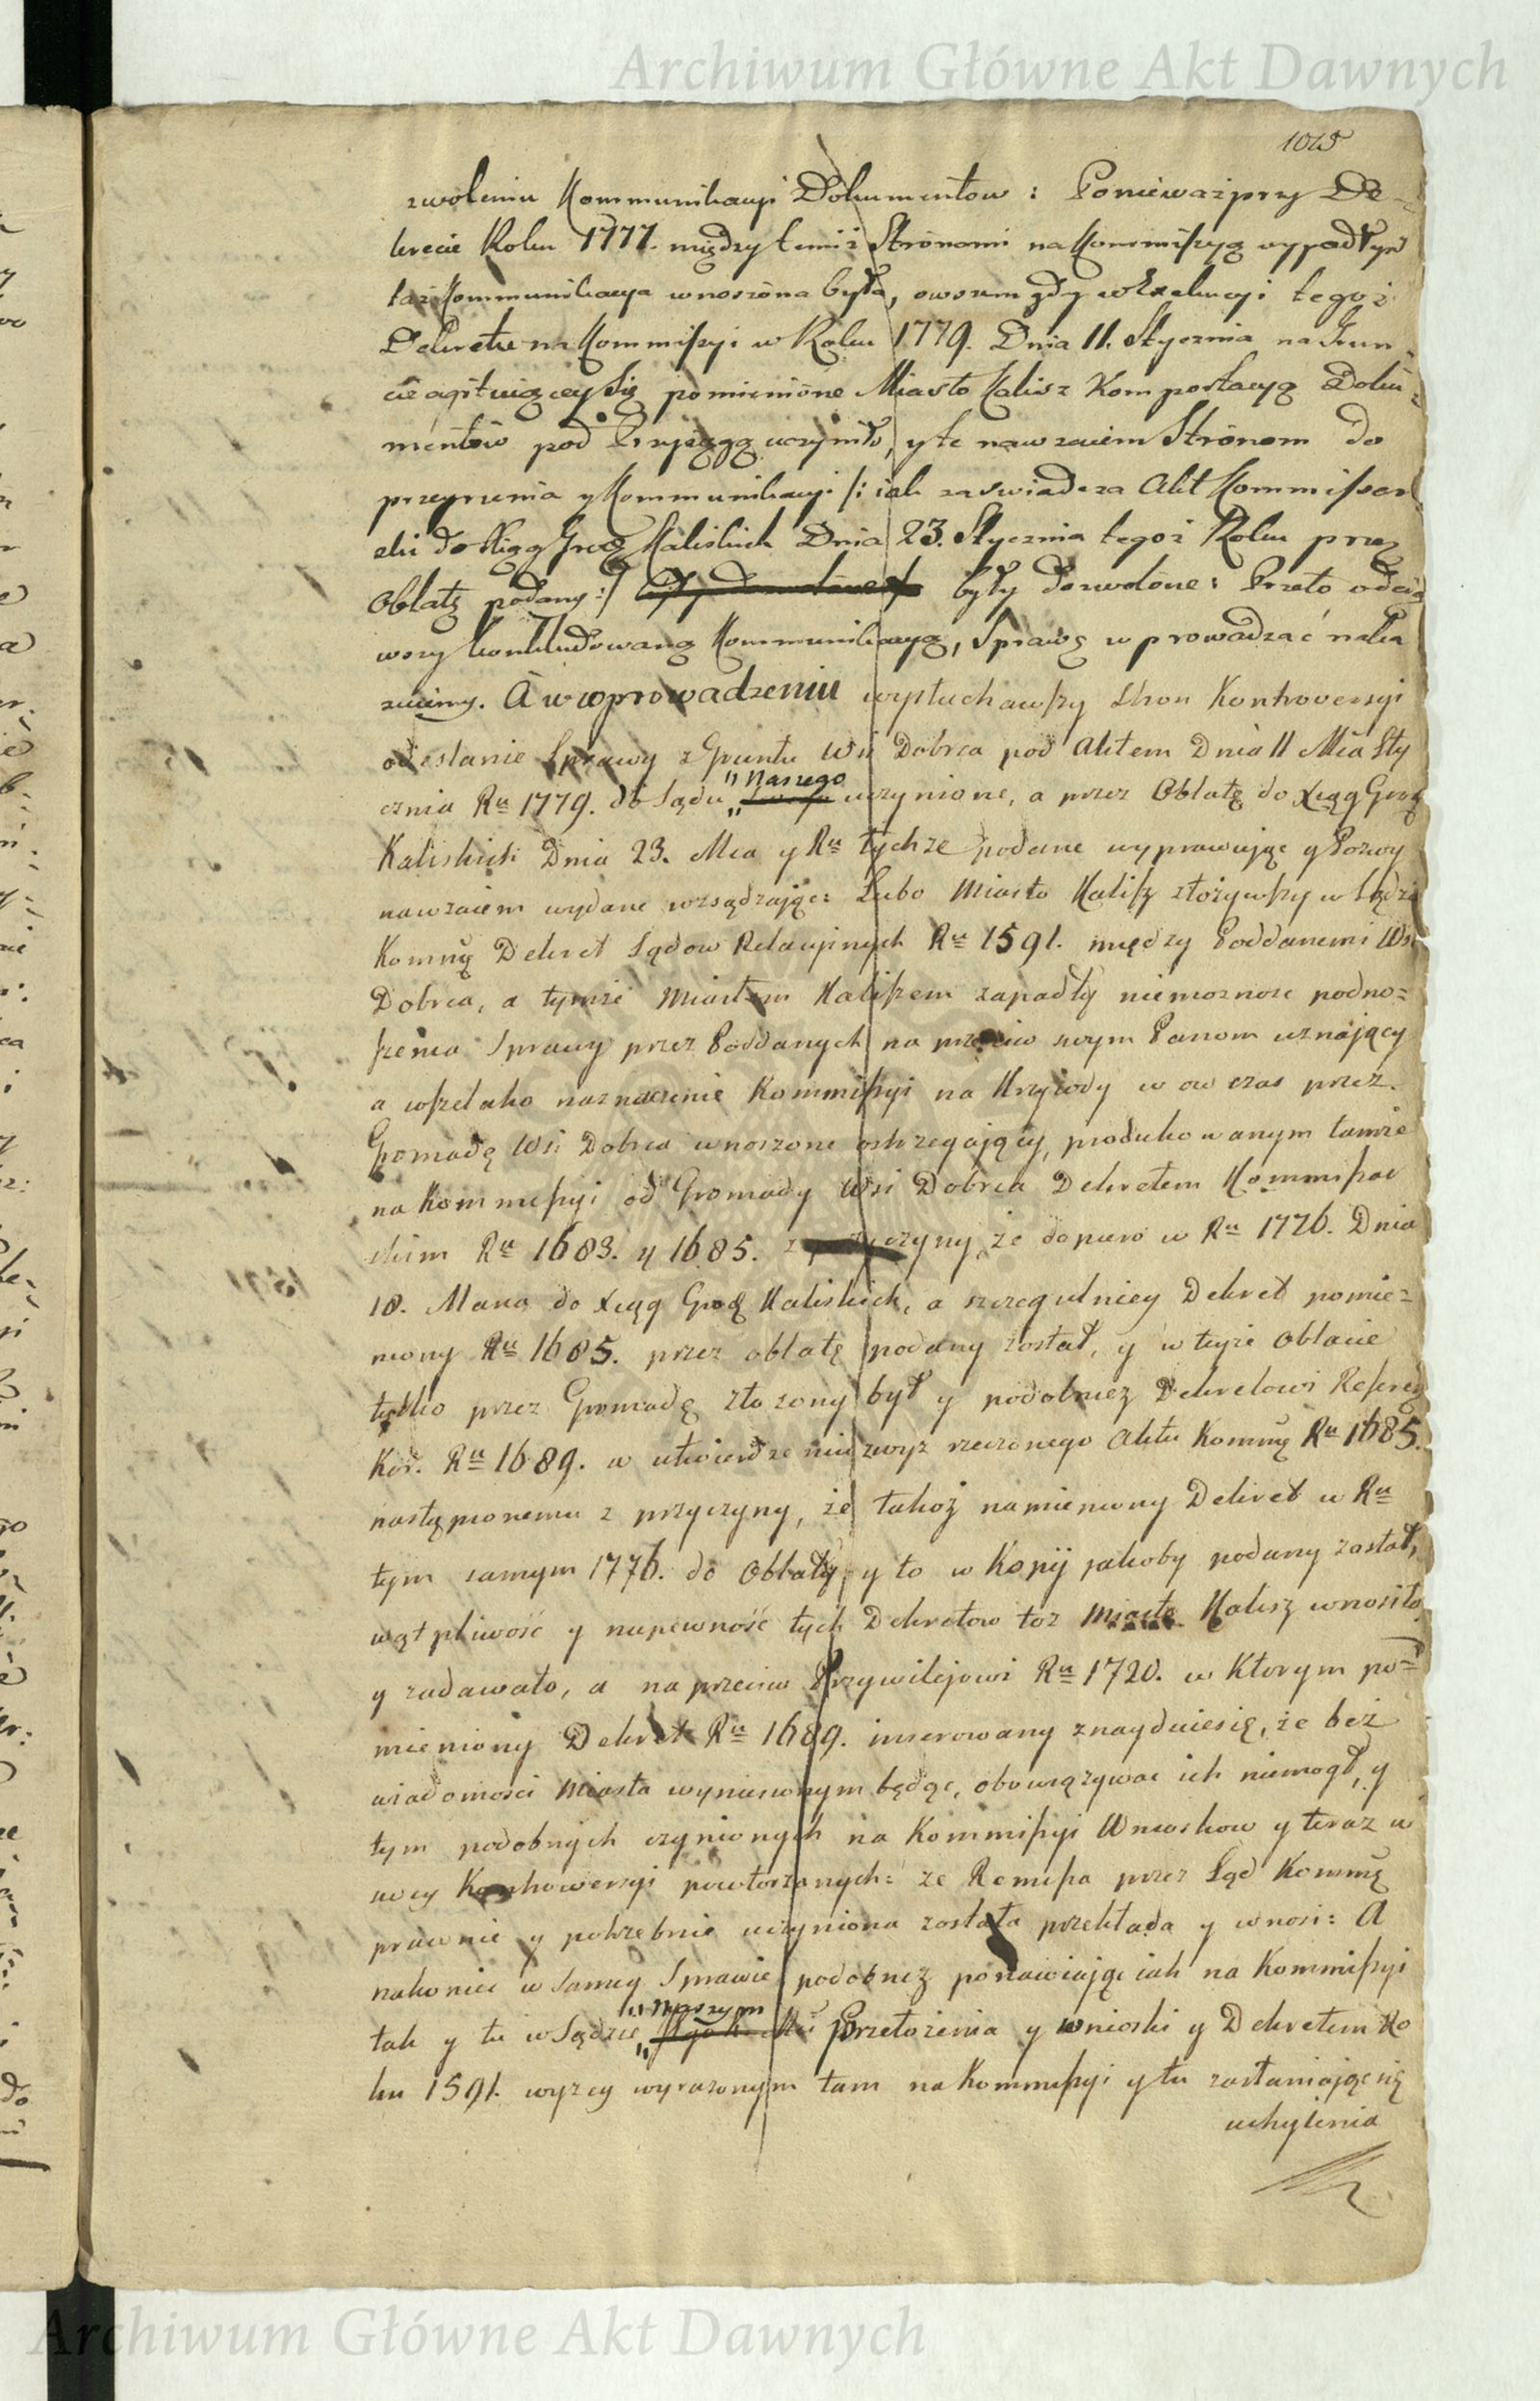 Archiwum Główne Akt Dawnych
1025
zwoleniu Kommunikacyi Dokumentow : Ponieważ przy De-
krecie Roku 1777. między temiż Stronami na Kommissyą wypadłym
taż Kommunikacya wnoszona była, owszem gdy w Exekucyi tegoż
Dekretu na Kommissyi w Roku 1779. Dnia 11. Stycznia na Grun-
cie agituiącey się pomienione Miasto Kalisz Komportacyą Doku-
mentow pod Przysięgą uczyniło, y te nawzaiem Stronom do
przeyrzenia y Kommunikacyi /: iak zaswiadcza Akt Kommissar
ski do Xiąg Grodz Kaliskich Dnia 23. Stycznia tegoż Roku przez
Oblatę podany :/ były dozwolone : Przeto odci-
wszy konkludowaną Kommunikacyą, Sprawę wprowadzać naka
zuiemy. A w wprowadzeniu wysłuchawszy Stron Kontrowersyi
odesłanie Sprawy z Gruntu Wsi Dobrca pod Aktem Dnia 11 Mca Sty
cznia Ru 1779. do Sądu „ Naszego uczynione, a przez Oblatę do Xiąg Grodz
Kaliskich Dnia 23. Mca y Ru tychże podane wyprawuiąc y Pozwy
nawzaiem wydane rozsądzaiąc: Lubo Miasto Kalisz złożywszy w Sądzie
Kommę Dekret Sądow Relacyinych Ru 1591. między Poddanemi Wsi
Dobrca, a tymże Miastem Kaliszem zapadły niemoznosc podno-
szenia Sprawy przez Poddanych na przeciw swym Panom uznaiący
a wszelako naznaczenie Kommissyi na Krzywdy w ow czas przez
Gromadę Wsi Dobrca wnoszone ostrzegaiący, produkowanym tamże
na Kommissyi od Gromady Wsi Dobrca Dekretem Kommissar
skim Ru 1683. y 1685. z przyczyny, że dopiero w Ru 1776. Dnia
18. Marca do Xiąg Grodz Kaliskich, a szczegulniey Dekret pomie-
niony Ru 1685. przez oblatę podany został, y w teyże Oblacie
tylko przez Gromadę złożony był y podobnież Dekretowi Referen
Kor. Ru 1689. w utwierdzeniu zwyż rzeczonego Aktu Kommę Ru 1685.
nastąpionemu z przyczyny, że takoż namieniony Dekret w Ru
tym samym 1776. do Oblaty y to w Kopij jakoby podany został,
wątpliwość y niepewność tych Dekretow toż Miasto Kalisz wnosiło
y zadawało, a na przeciw Przywilejowi Ru 1720. w Ktorym po-
mieniony Dekret Ru 1689. inserowany znayduie się, że bez
wiadomosci Miasta wyniesionym będąc, obowiązywac ich niemogł, y
tym podobnych czynionych na Kommissyi Wnioskow y teraz w
swey Kontrowersyi powtorzonych: że Remissa przez Sąd Kommę
prawnie y potrzebnie uczyniona została przekłada y wnosi: A
nakoniec w samey Sprawie podobnież ponawiaiąc iak na Kommissyi
tak y tu w Sądzie „ Naszym Przełożenia y wnioski y Dekretem Ro
ku 1591. wyżey wyrażonym tam na Kommissyi y tu zasłaniaiąc się
uchylenia
Archiwum Główne Akt Dawnych